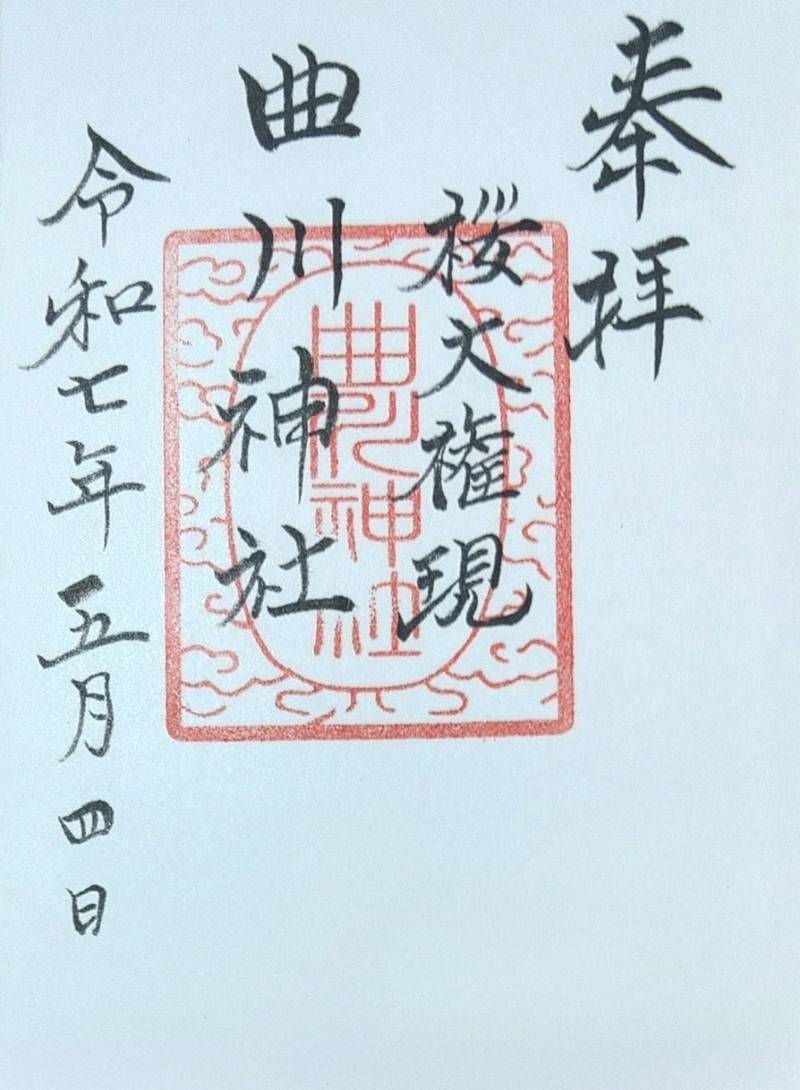 奉拝
桜大権現
曲川神社
曲川神社
令和七年五月四日